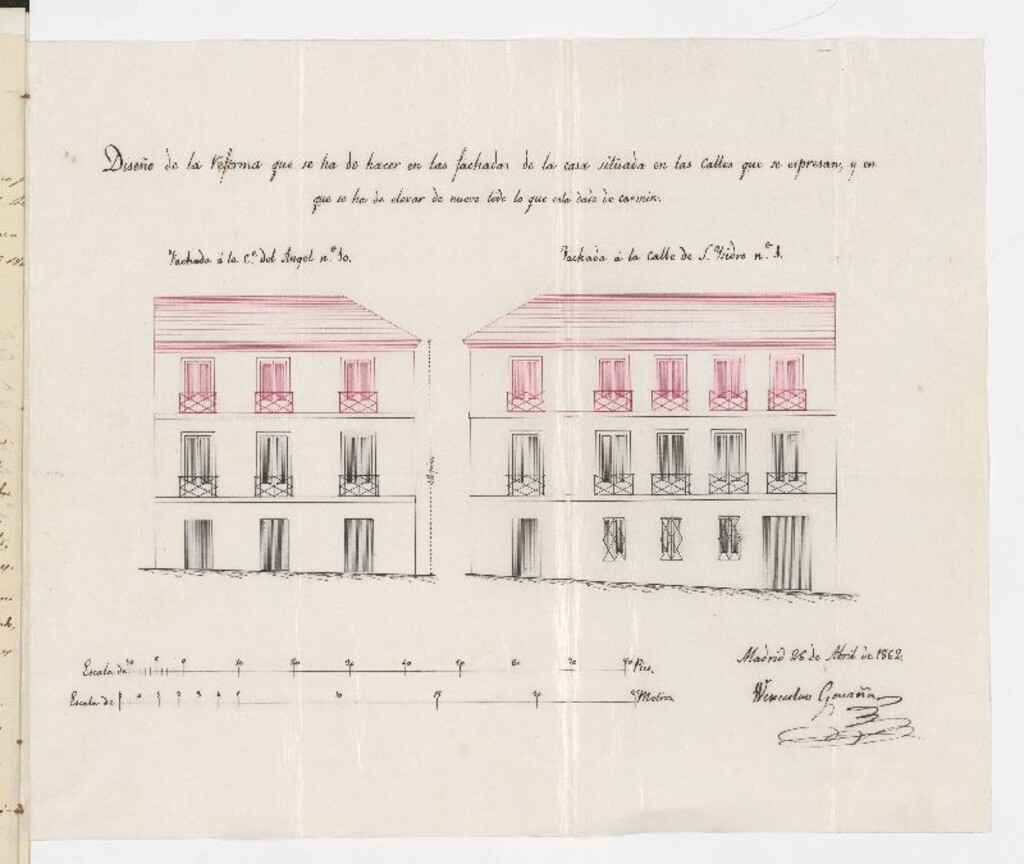 Diseño de la Reforma que se ha de hacer en las fachadas de la casa situada en las Calles que se espresan, y en
que se ha de elevar de nuevo todo lo que está dado de carmin.
Fachada á la C.e del Angel n.º 10.
Fachada á la Calle de S. Ysidro n.º 1.
Escala de 10 5 0 10 20 30 40 50 60 70 80 Pies.
Escala de 1 0 1 2 3 4 5 10 15 20 25 Metros
Madrid 26 de Abril de 1862.
Wenceslao Gaviña